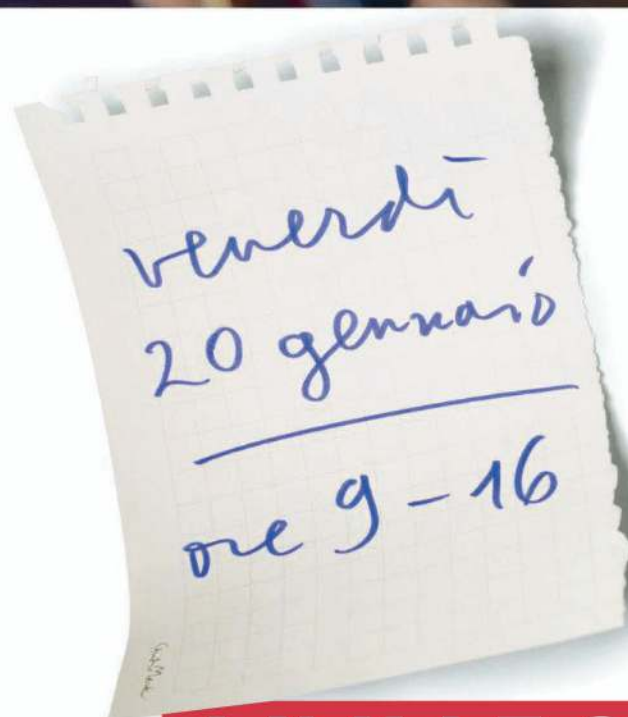 venerdì
20 gennaio
ore 9-16